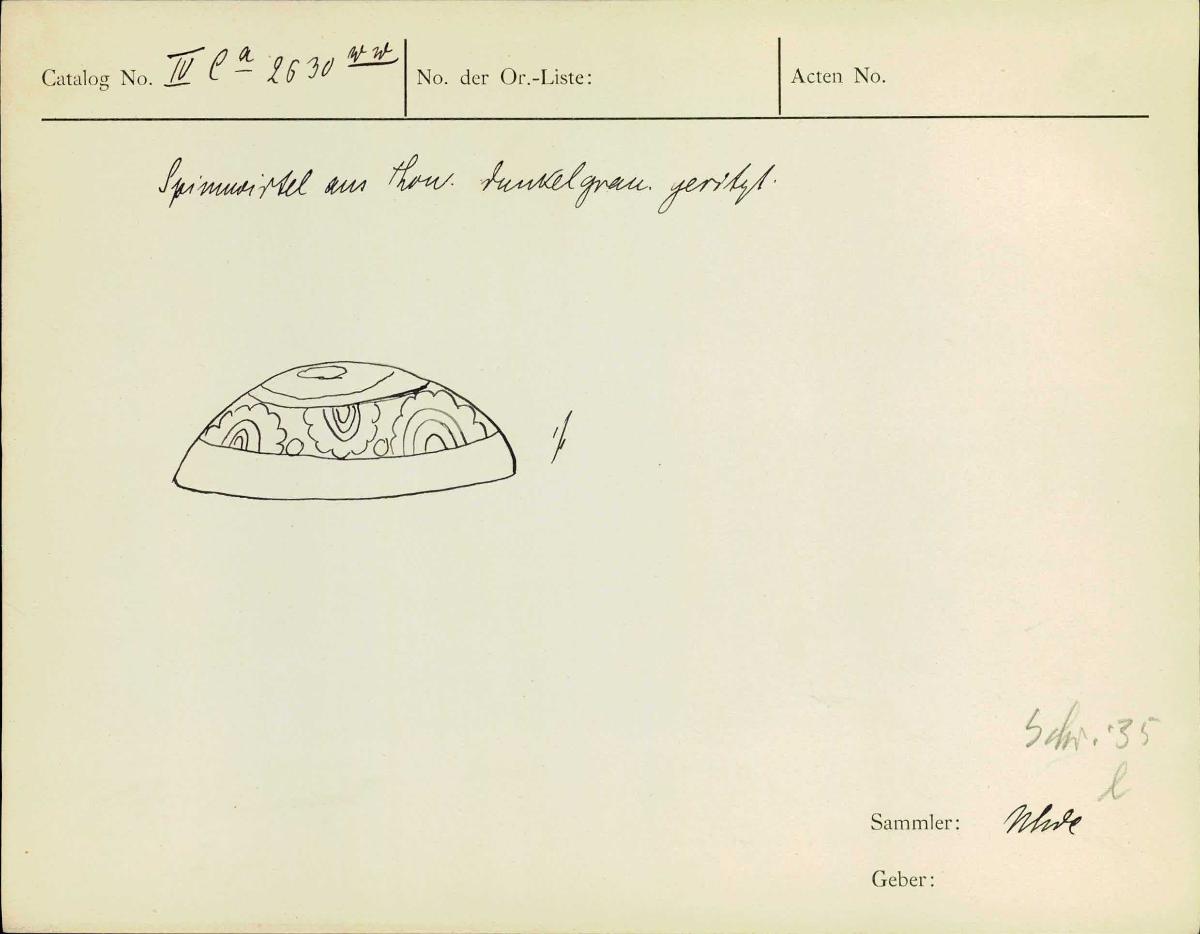 Catalog No. IV Ca 2630 ww
No. der Or.-Liste:
Acten No.
Spinnwirtel aus Thon. dunkelgrau. geritzt.
1/1
Schr. 35
l
Sammler: Uhde
Geber: